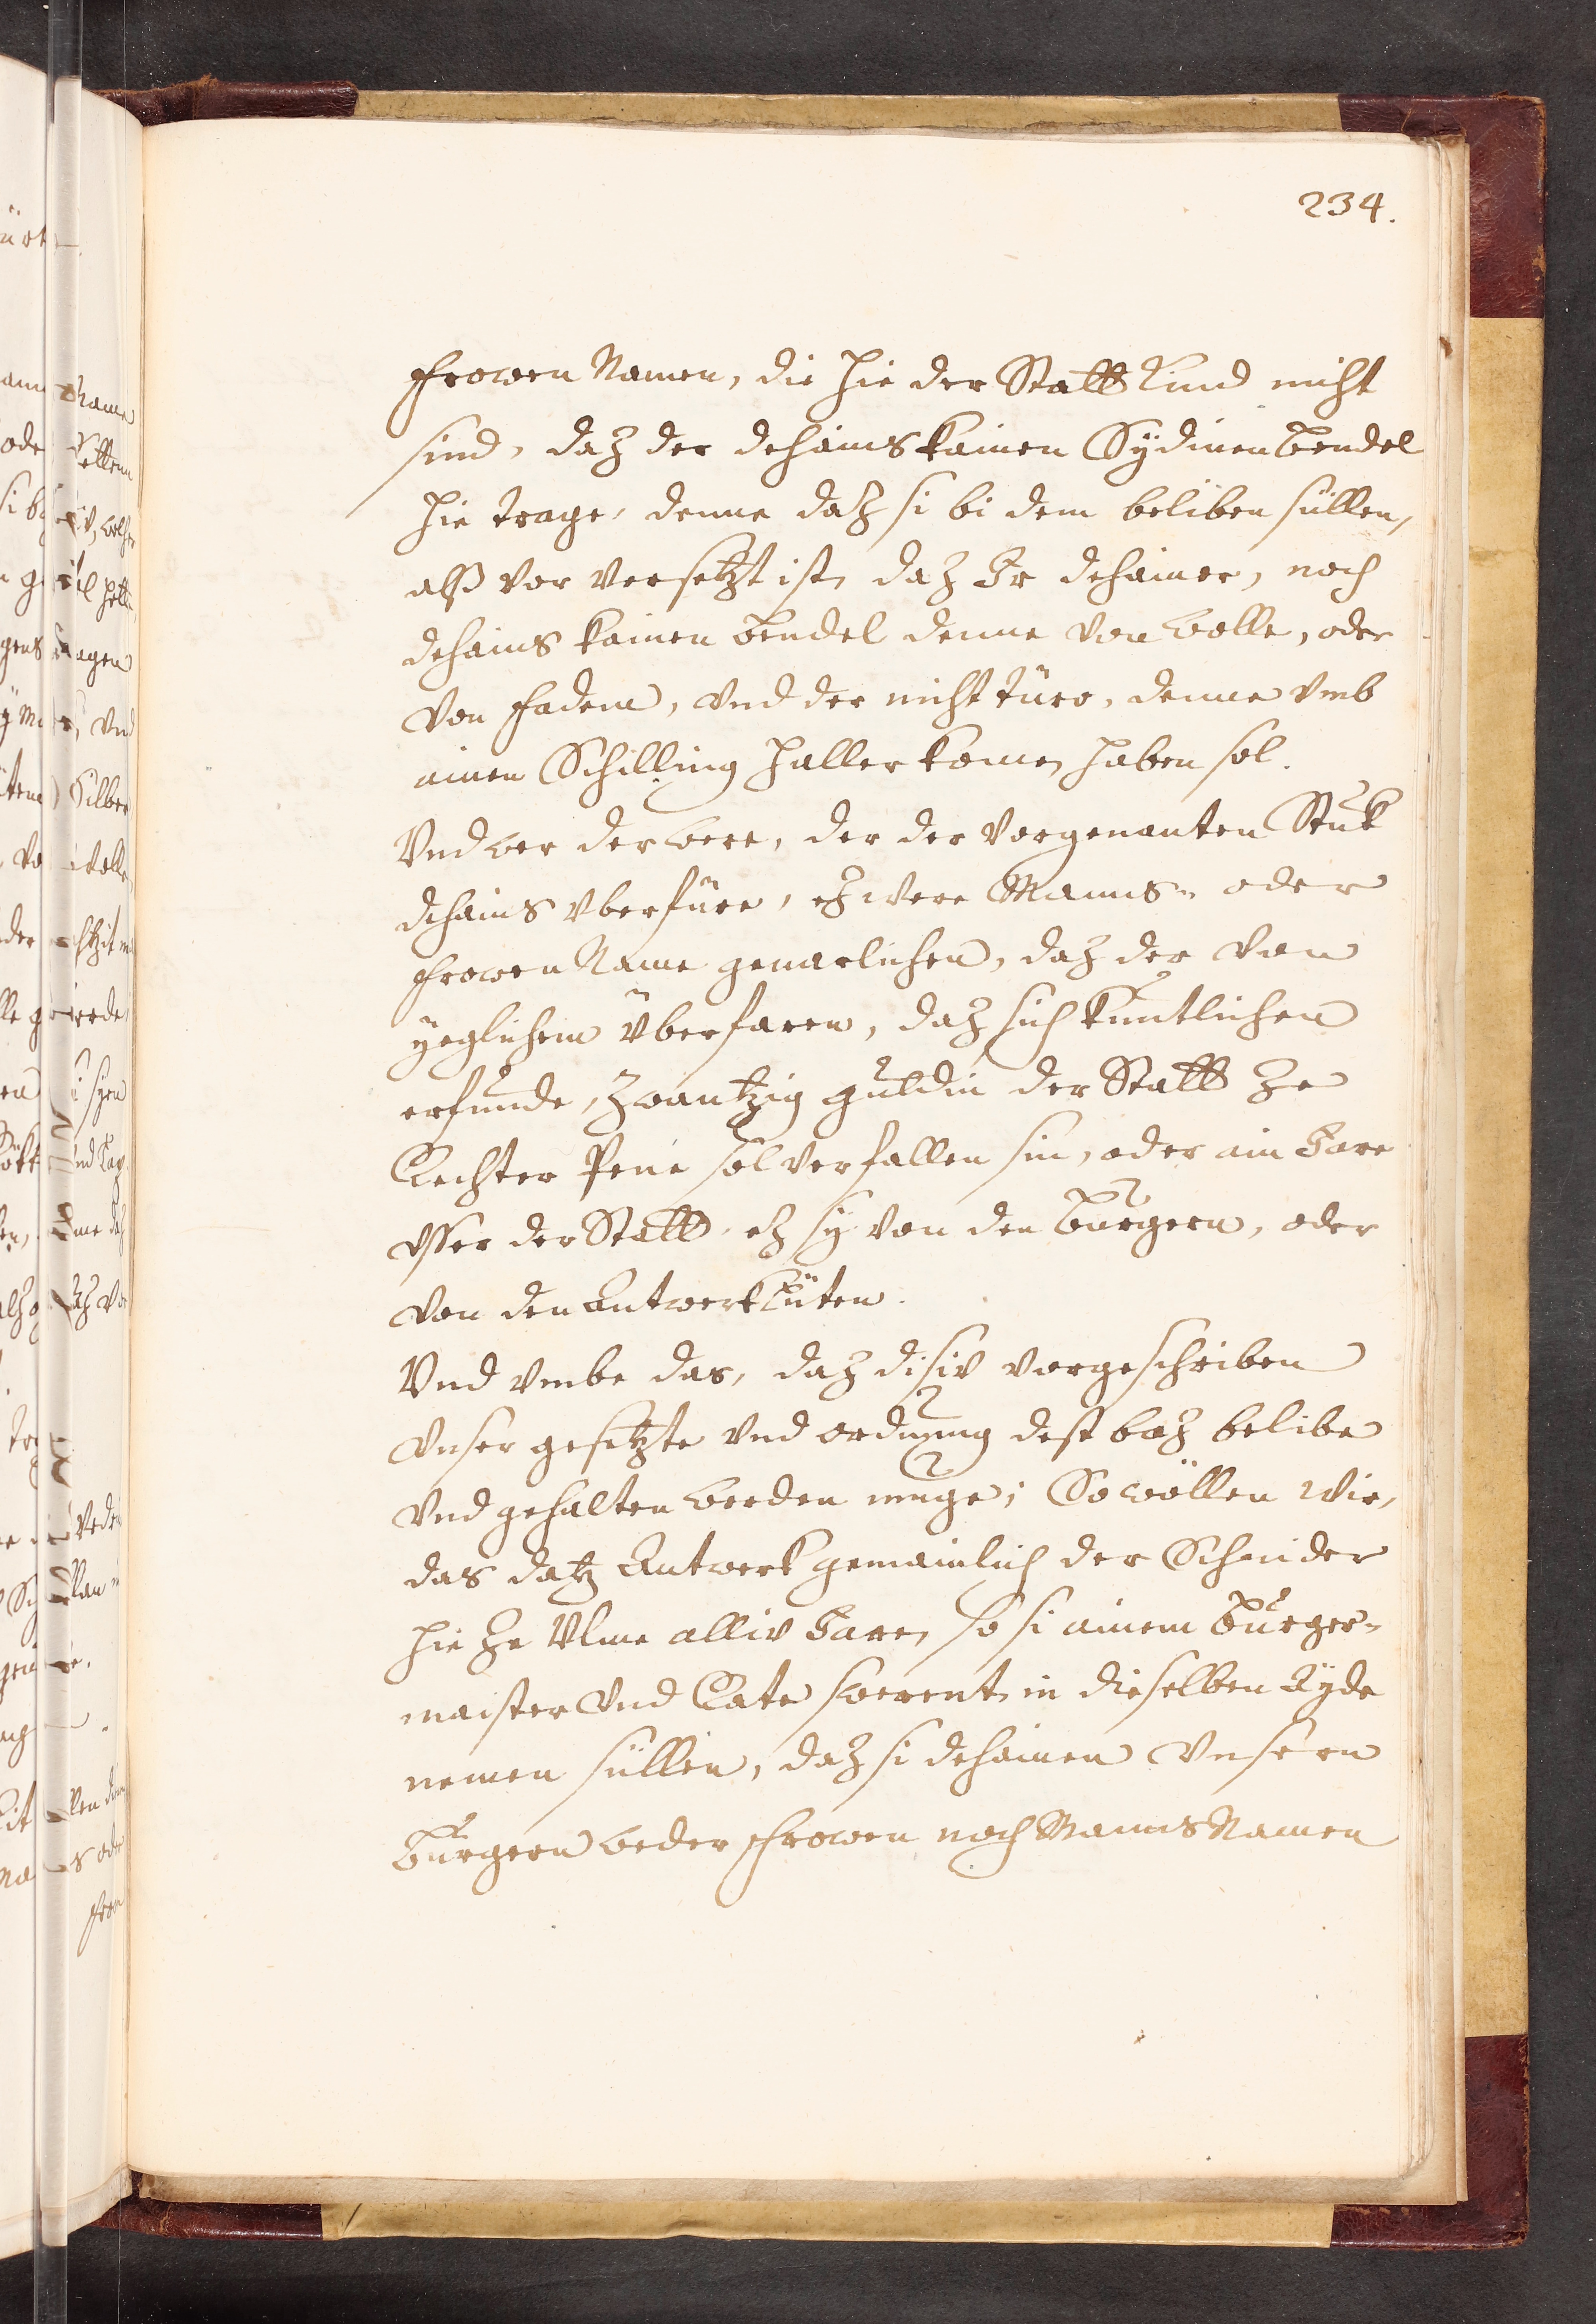 234.
Frowen Namen, die hie der Statt Kind nicht
sind, daz der dehains kainen Sydinen bendel
hie trage, denne daz si bi dem beliben süllen,
alß vor versetzt ist, daz Ir dehainer, noch
dehains kainen bendel denne von wolle, oder
von fadem, vnd der nicht türo, denne vmb
ainen Schilling haller komen haben sol.
Vnd wer der were, der der vorgenanten Stuk
dehains vberfüre, ez were Manns- oder
Frowen Name geuarlichen, daz der von
yeglichem überfaren, daz sich kuntlichen
erfunde, zwantzig guldin der Statt ze
Rechter Pene sol verfallen sin, oder ain Jare
vsser der Statt, ez sy von den burgern, oder
von den Antwerklüten.
Vnd vmbe das, daz disiv vorgeschriben
vnser gesetzte vnd ordnung dest baz belibe
vnd gehalten werden muge; So wöllen wir,
das datz Antwerk gemainlich der Schnider
hie ze Ulme alliv Jare, so si ainem burger-
maister vnd Rate swerent, in dieselben Ayde
nemen süllin, daz si dehainen vnsern
burgern weder Frowen noch Manns Namen